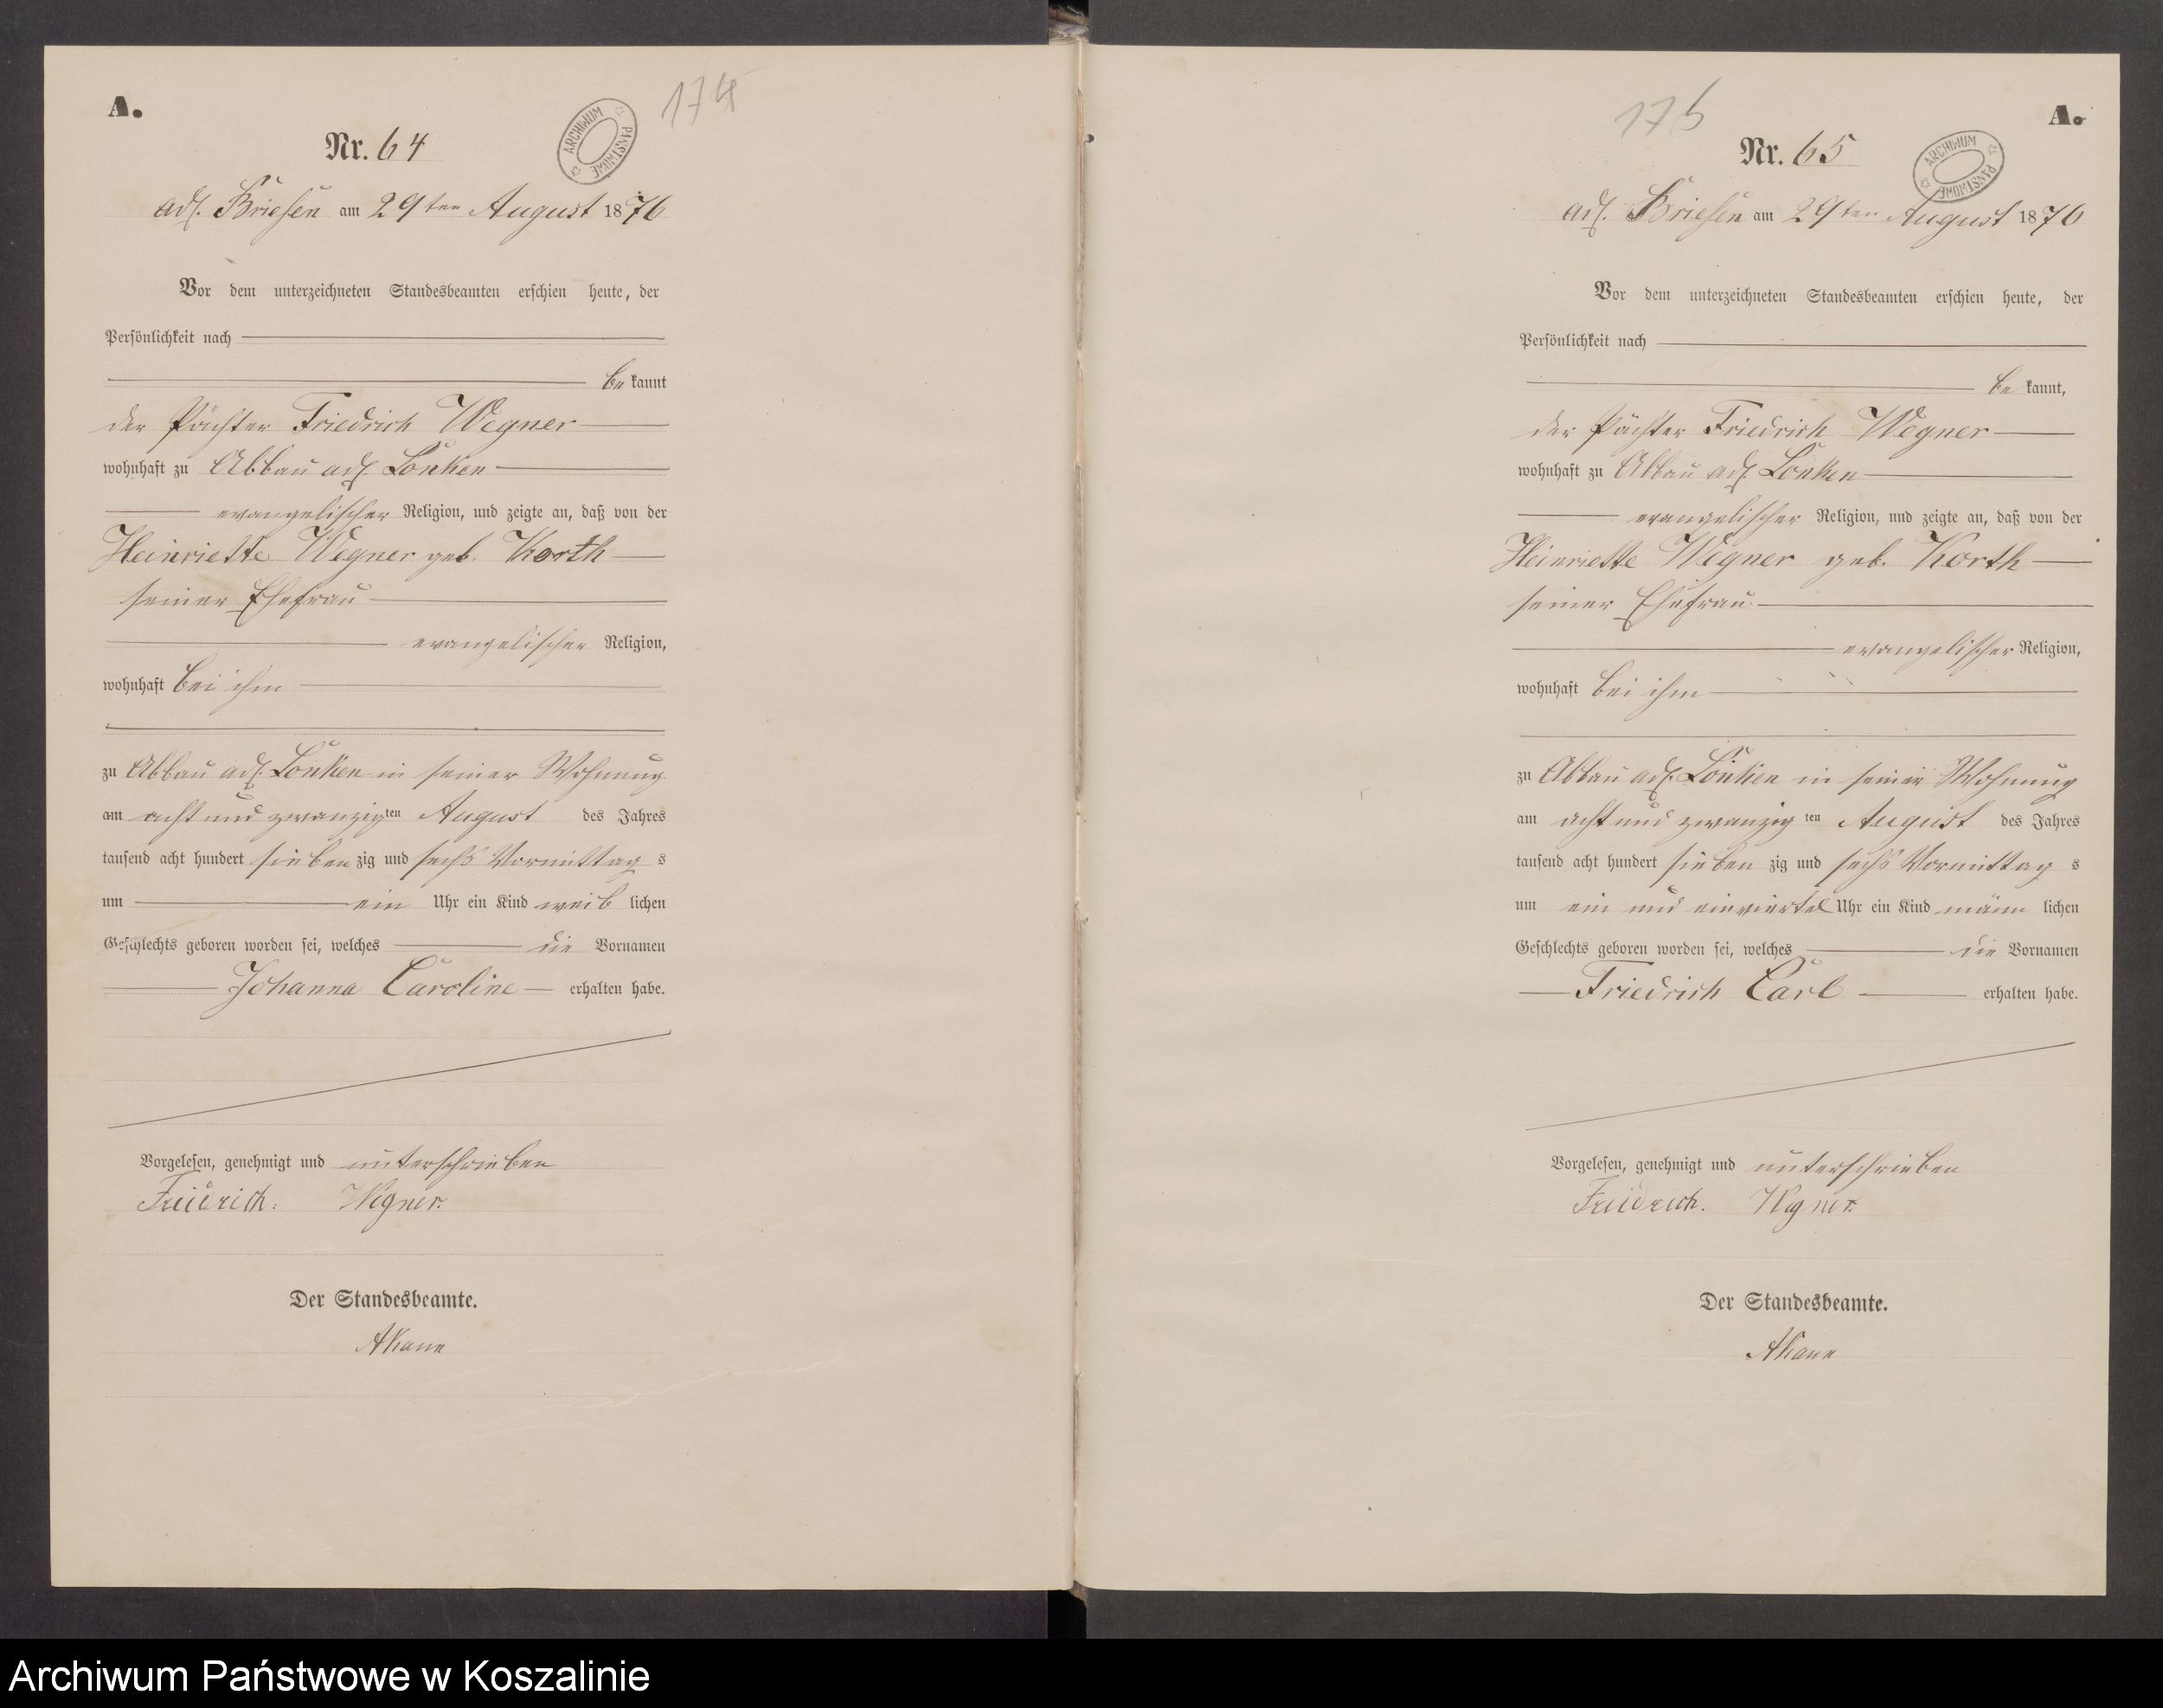 A.
174
Nr. 64
ARCHIWUM PAŃSTWOWE
adl. Briesen am 29ten August 1876
Vor dem unterzeichneten Standesbeamten erschien heute, der
Persönlichkeit nach
be kannt
der Pächter Friedrich Wegner
wohnhaft zu Abbau adl. Lonken
evangelischer Religion, und zeigte an, daß von der
Heinriette Wegner geb. Korth
seiner Ehefrau
evangelischer Religion,
wohnhaft bei ihm
zu Abbau adl. Lonken in seiner Wohnung
am acht und zwanzigten August des Jahres
tausend acht hundert sieben zig und sechs Vormittag s
um ein Uhr ein Kind weib lichen
Geschlechts geboren worden sei, welches die Vornamen
Johanna Caroline erhalten habe.
Vorgelesen, genehmigt und unterschrieben
Friedrich. Wegner.
Der Standesbeamte.
175
A.
Nr. 65
ARCHIWUM PAŃSTWOWE
adl. Briesen am 29ten August 1876
Vor dem unterzeichneten Standesbeamten erschien heute, der
Persönlichkeit nach
be kannt,
der Pächter Friedrich Wegner
wohnhaft zu Abbau adl. Lonken
evangelischer Religion, und zeigte an, daß von der
Heinriette Wegner geb. Korth
seiner Ehefrau
evangelischer Religion,
wohnhaft bei ihm
zu Abbau adl. Lonken in seiner Wohnung
am acht und zwanzig ten August des Jahres
tausend acht hundert sieben zig und sechs Vormittag s
um ein und einviertel Uhr ein Kind männ lichen
Geschlechts geboren worden sei, welches die Vornamen
Friedrich Carl erhalten habe.
Vorgelesen, genehmigt und unterschrieben
Friedrich. Wegner.
Der Standesbeamte.
Archiwum Państwowe w Koszalinie